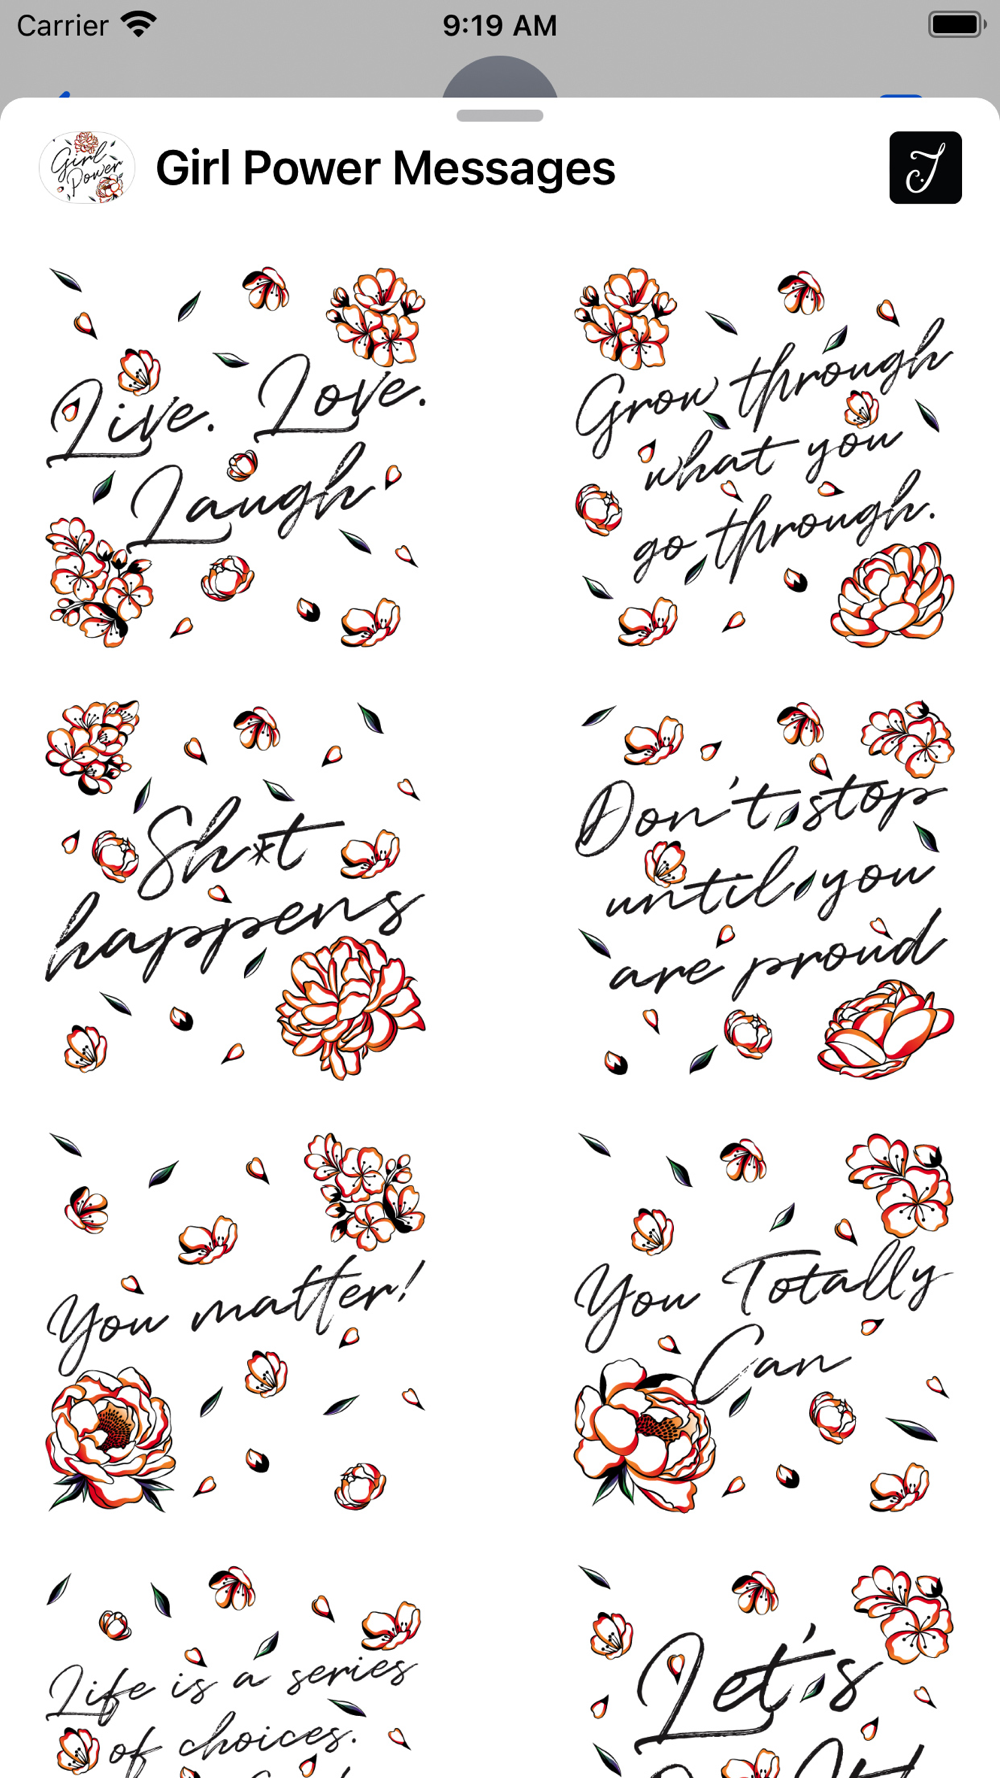 Carrier
9:19 AM
Girl
Power
Girl Power Messages
J
Live. Love.
Laugh
Grow through
what you
go through.
Sh*t
happens
Don't stop
until you
are proud
You matter!
You Totally
Can
Life is a series
of choices.
Let's